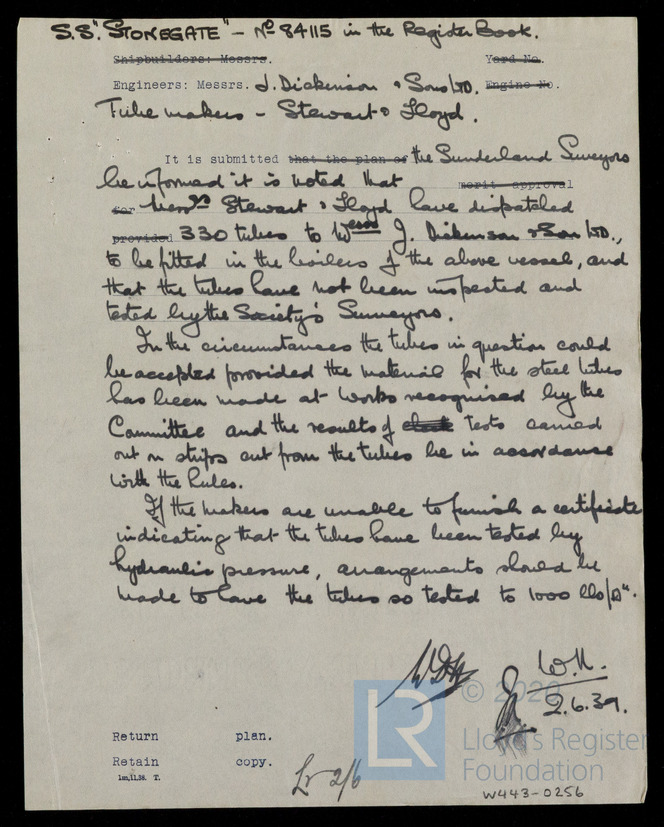 S.S. "STONEGATE" - No 84115 in the Register Book.
Shipbuilders: Messrs. Yard No.
Engineers: Messrs. J. Dickinson & Sons LTD. Engine No.
Tube makers - Stewart & Lloyd.
It is submitted that the plan of the Sunderland Surveyors
be informed it is noted that merit approval
for Messrs Stewart & Lloyd have dispatched
provided 330 tubes to Messrs J. Dickinson & Son LTD.,
to be fitted in the boilers of the above vessel, and
that the tubes have not been inspected and
tested by the Society's Surveyors.
In the circumstances the tubes in question could
be accepted provided the material for the steel tubes
has been made at works recognised by the
Committee and the results of tests carried
out on strips cut from the tubes be in accordance
with the Rules.
If the makers are unable to furnish a certificate
indicating that the tubes have been tested by
hydraulic pressure, arrangements should be
made to have the tubes so tested to 1000 lbs/□".
W.H.
2.6.39.
© 2020
Lloyd's Register
Foundation
LR
Return plan.
Retain copy.
1m,11,38. T.
Lr 2/6
W443-0256